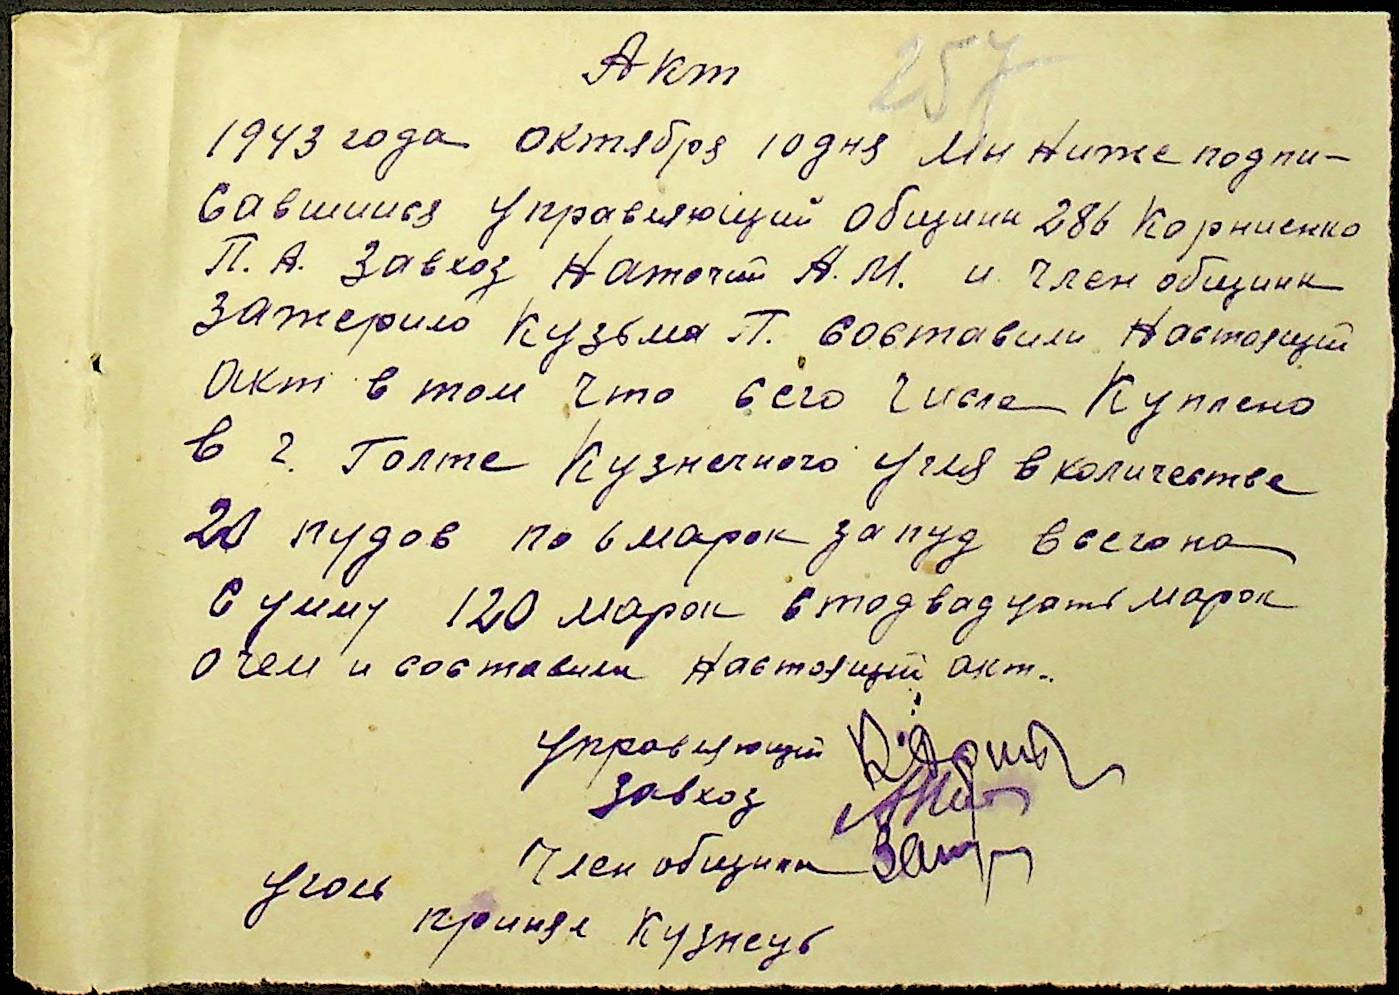 Акт
257
1943 года октября 10 дня Мы Ниже подпи-
савшиися управляющий общины 286 Корниенко
П. А. Завхоз Наточий А. М. и член общины
Зажерило Кузьма П. составили Настоящий
акт в том что сего числа Куплено
в г. Голте Кузнечного угля в количестве
20 пудов по 6 марок за пуд всего на
сумму 120 марок стодвадцать марок
о чем и составили Настоящий акт..
управляющий
Завхоз
Член общины
уголь
принял Кузнець